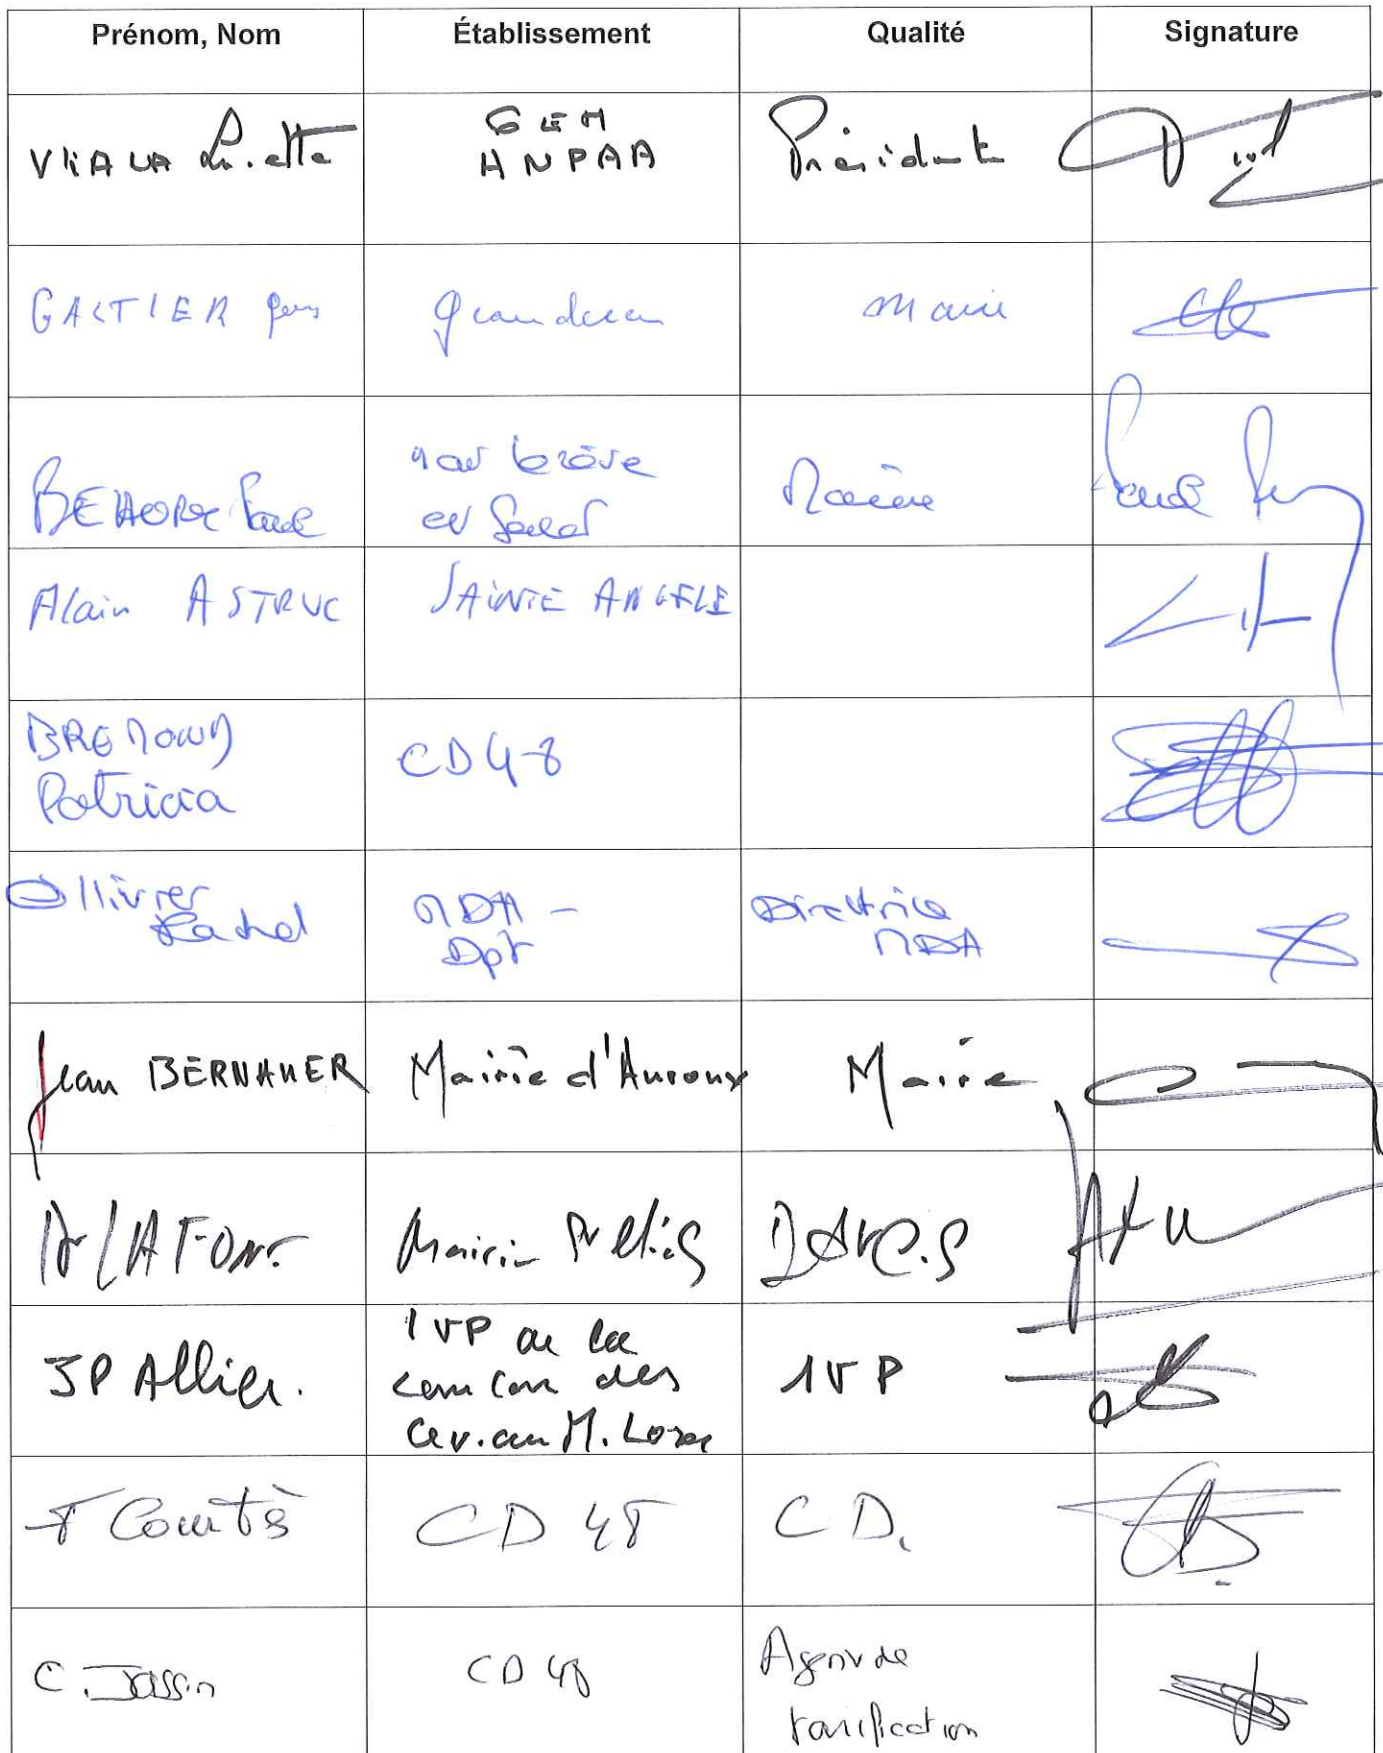 Prénom, Nom Établissement Qualité Signature
VIALA GEM Présidente
ANPAA
GALTIER Grandrieu Maire
Paul Maire
Alain ASTRUC SAINTE ANGELE
BREMOND CD48
Patricia
Ollivier MDA - Directrice
Rachel Dpt MDA
Jean BERNAUER Mairie d'Auroux Maire
Dr LAFONT Mairie
JP Allier. 1VP de la 1VP
com com des
Cev. au M. Lozère
F Courtès CD 48 C D.
C. Jassin CD 48 Agent de
tarification